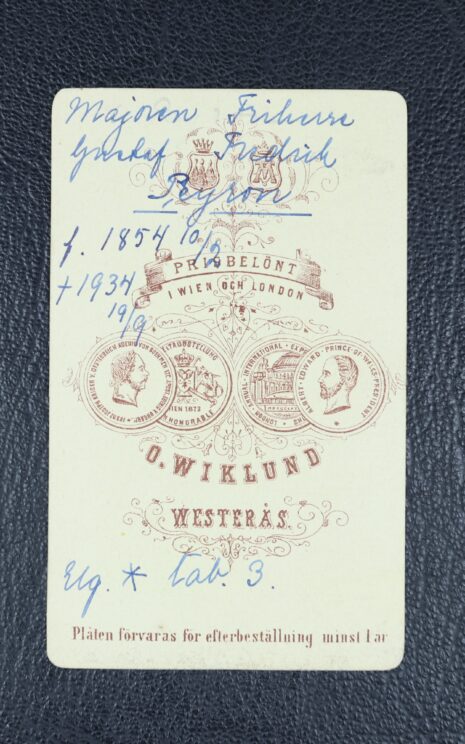 Majoren Friherre
Gustaf Fredrik
Peyron
f. 1854 10/2
† 1934
19/9.
PRISBELÖNT
I WIEN OCH LONDON
WIEN 1872
HONORABLE
LONDON ANNUAL INTERNATIONAL
ALBERT EDWARD PRINCE OF WALES PRESIDENT
O. WIKLUND
WESTERÅS.
Elg. * tab. 3.
Plåten förvaras för efterbeställning minst 1 år